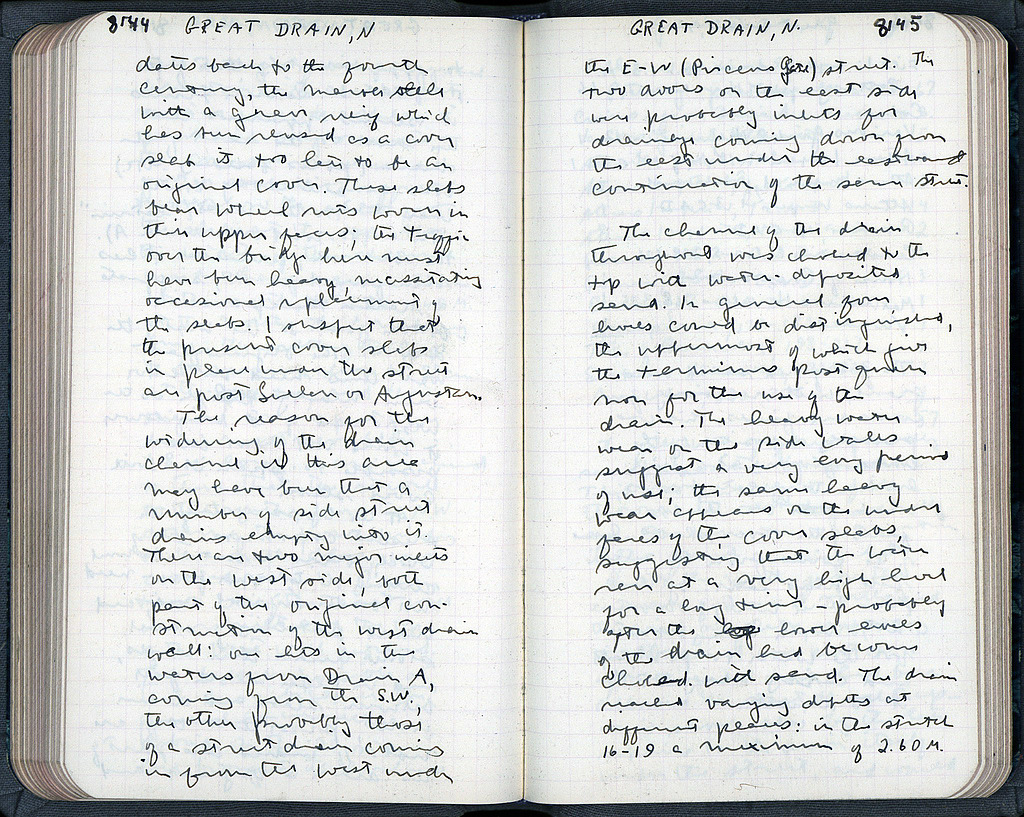 8144 GREAT DRAIN, N
dates back to the fourth
century, the marble slab
with a graver, very which
has been reused as a cover
slab is too late to be an
original cover. These slabs
bear wheel ruts worn in
their upper faces; the traffic
over the bridge here must
have been heavy, necessitating
occasional replacement of
the slabs. I suspect that
the present cover slabs
in place under the street
are post Sullan or Augustan.
The reason for the
widening of the drain
channel in this area
may have been that a
number of side street
drains empty into it.
There are two major inlets
on the west side, both
part of the original con-
struction of the west drain
wall: one lets in the
waters from Drain A,
coming from the S.W,
the other probably those
of a street drain coming
in from the west under
GREAT DRAIN, N. 8145
the E-W (Piraeus Gate) street. The
two doors on the east side
were probably inlets for
drainage coming down from
the east under the eastward
continuation of the same street.
The channel of the drain
throughout was choked to the
top with water-deposited
sand. In general four
levels could be distinguished,
the uppermost of which give
the terminus post quem
non for the use of the
drain. The heavy water
wear on the side walls
suggest a very long period
of use; the same heavy
wear appears on the under
faces of the cover slabs,
suggesting that the water
ran at a very high level
for a long time - probably
after the lower levels
of the drain had become
choked with sand. The drain
reached varying depths at
different places: in the stretch
16-19 a maximum of 2.60 M.